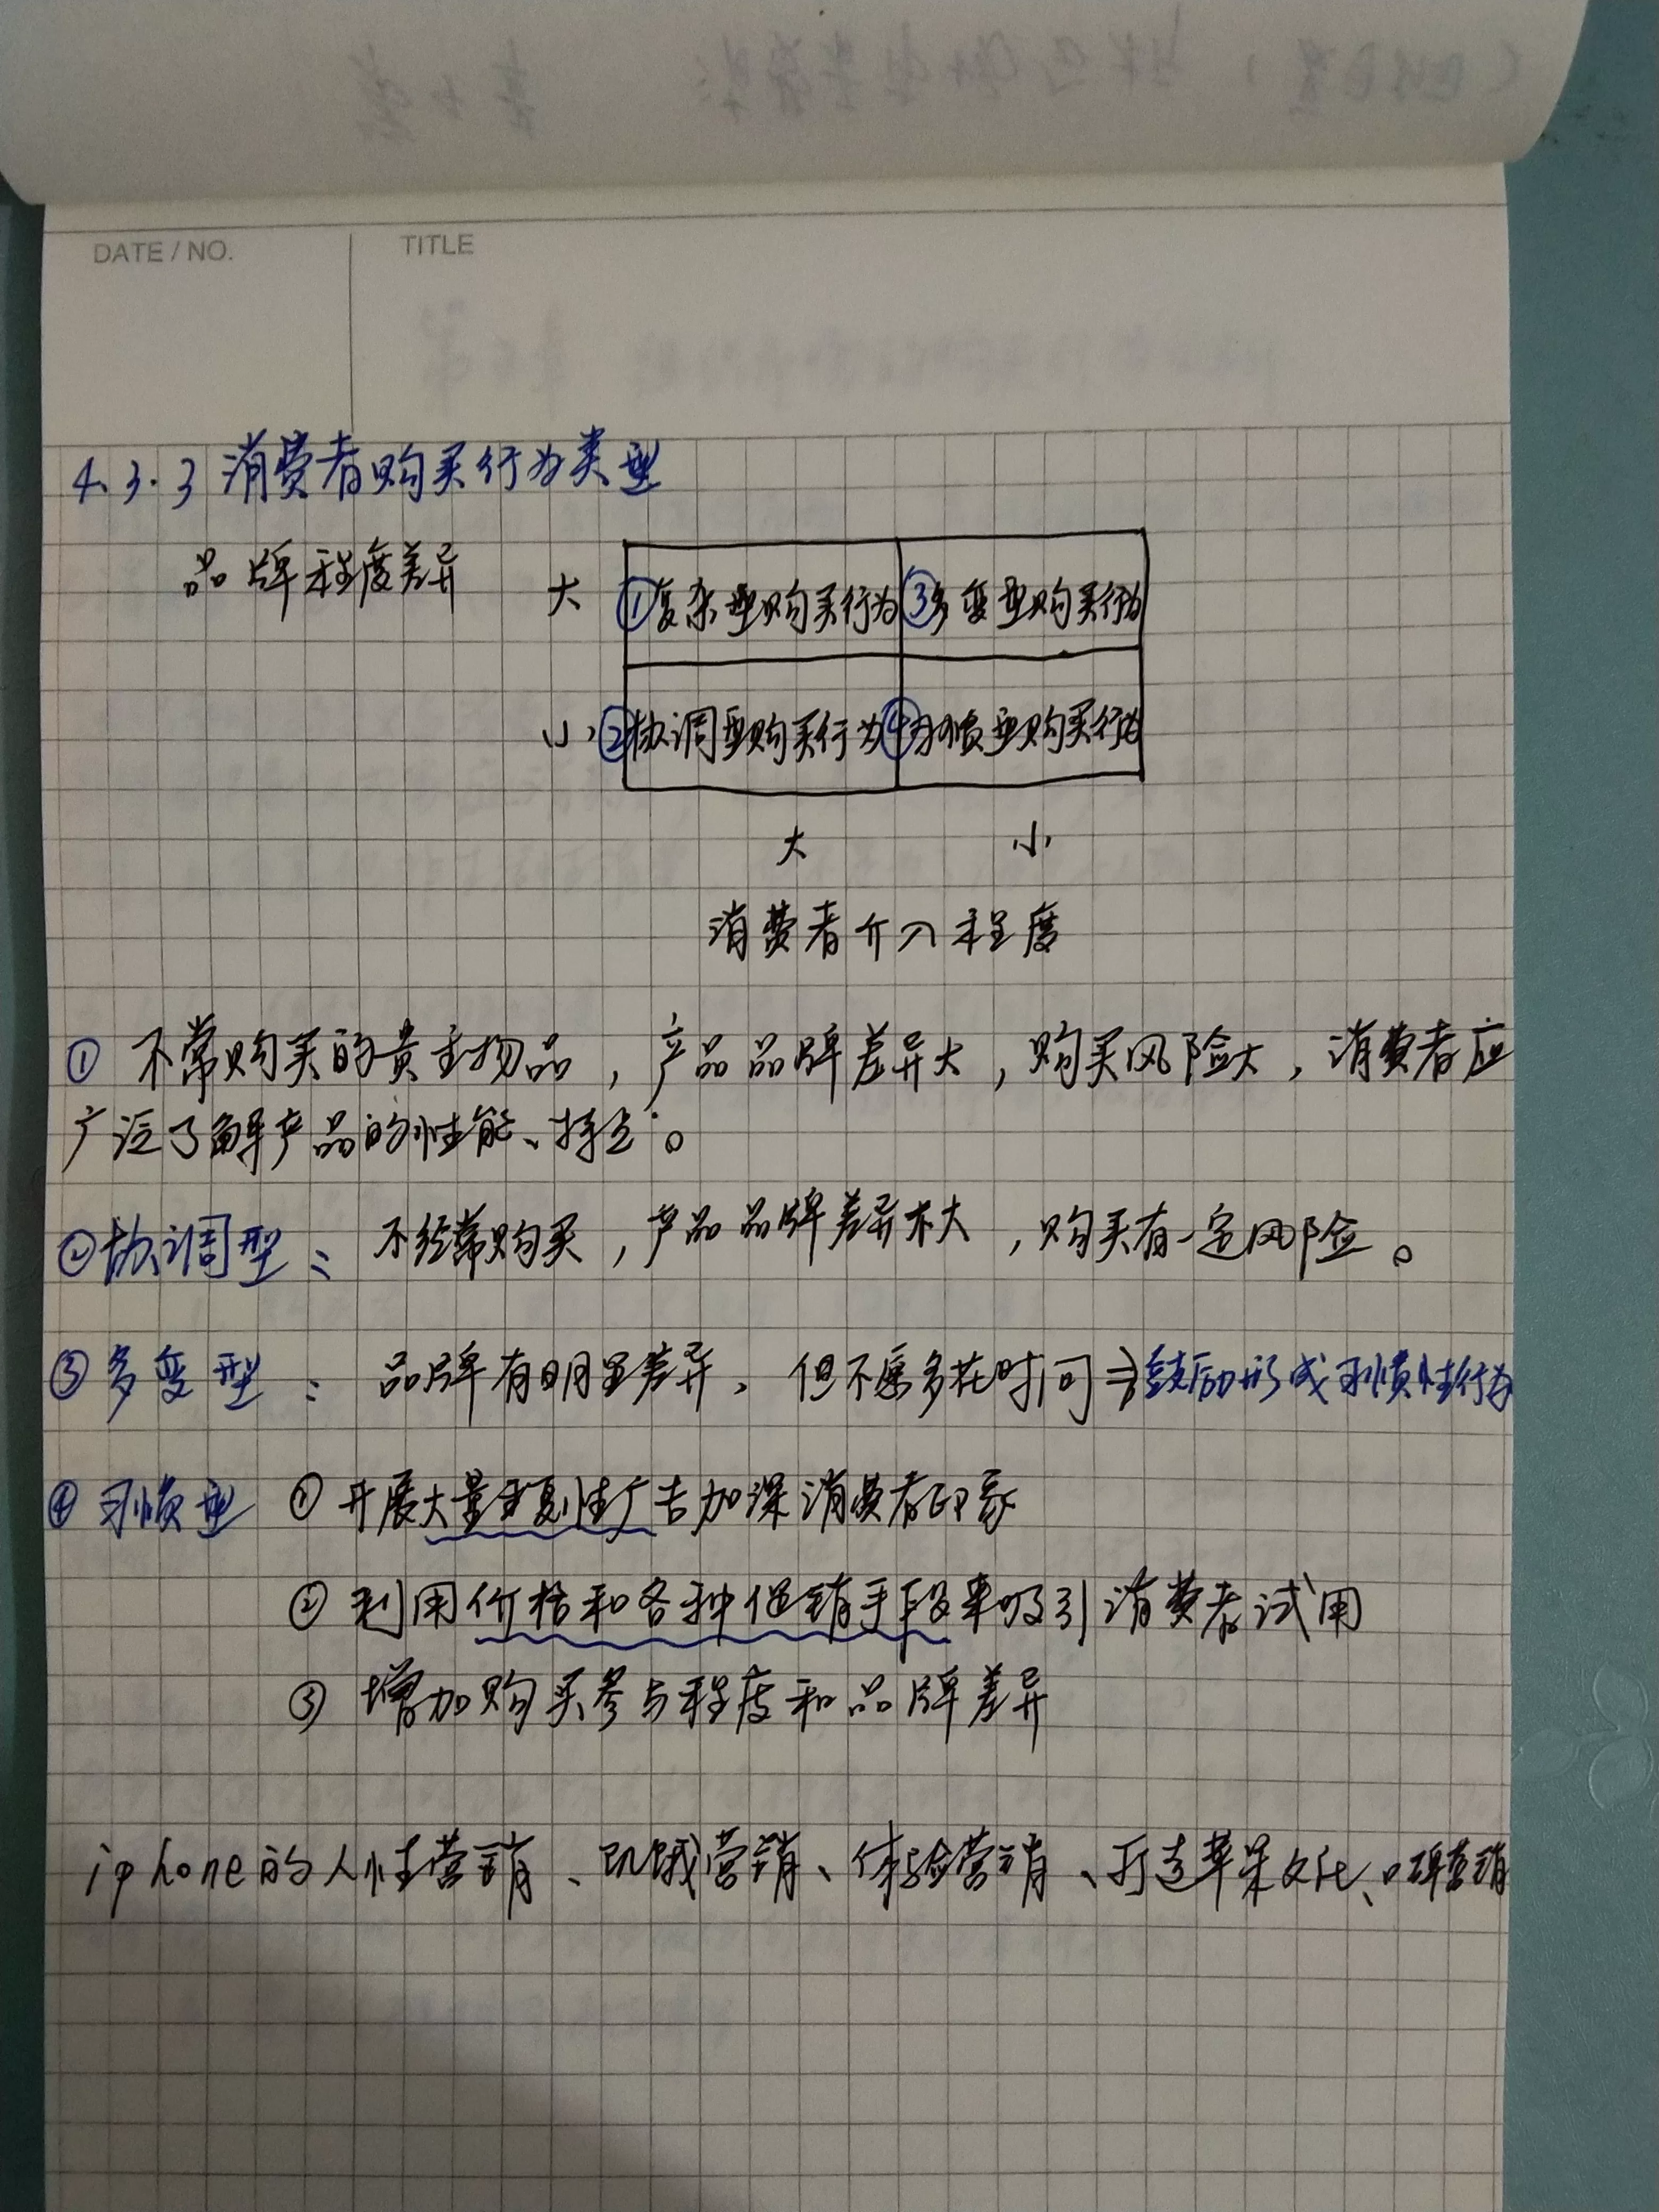 DATE / NO.
TITLE
4.3.3 消费者购买行为类型
品牌程度差异
大 ①复杂型购买行为 ③多变型购买行为
小 ②协调型购买行为 ④习惯型购买行为
大 小
消费者介入程度
① 不常购买的贵重物品，产品品牌差异大，购买风险大，消费者应
广泛了解产品的性能、特点。
②协调型： 不经常购买，产品品牌差异不大，购买有一定风险。
③多变型： 品牌有明显差异，但不愿多花时间⇒鼓励形成习惯性行为
④习惯型 ① 开展大量重复性广告加深消费者印象
② 利用价格和各种促销手段来吸引消费者试用
③ 增加购买参与程度和品牌差异
iphone的人性营销、饥饿营销、体验营销、打造苹果文化、口碑营销